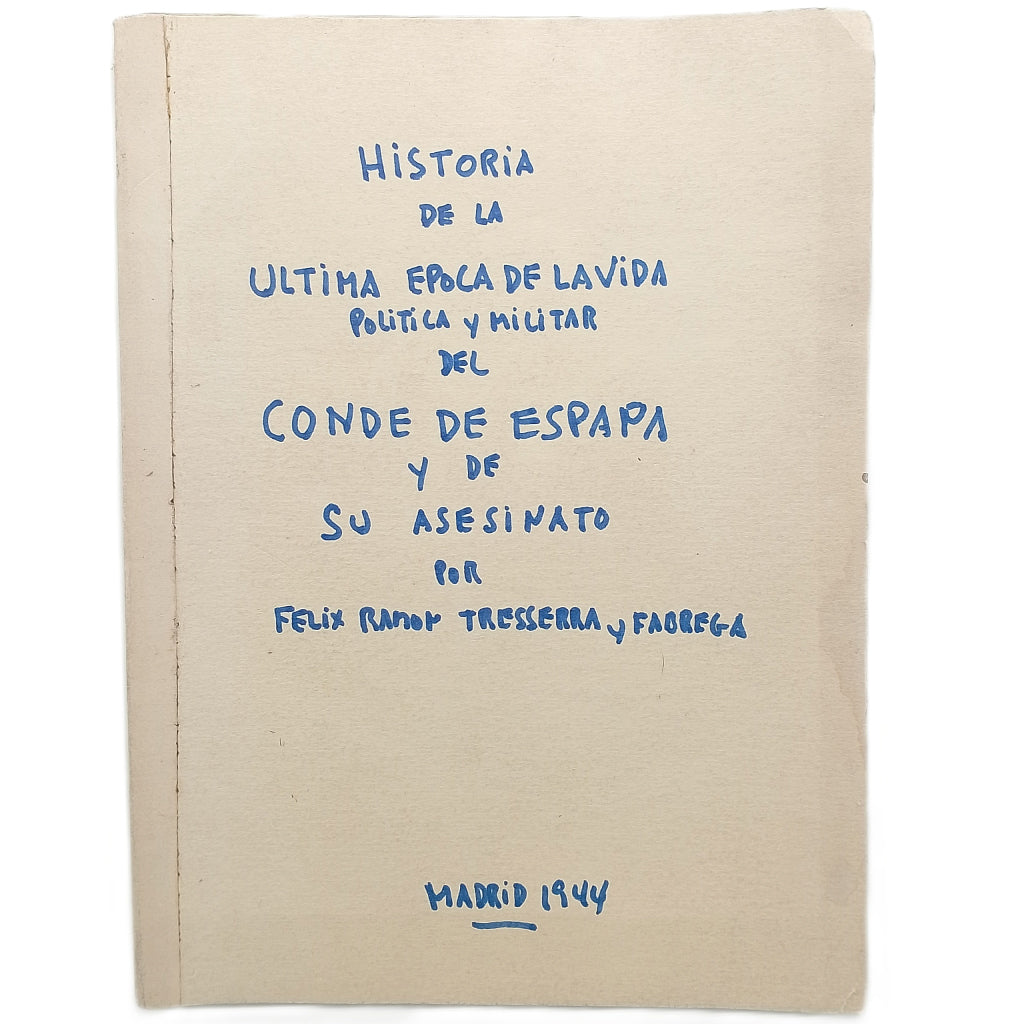 HiSTORiA
DE LA
ULTiMA EPOCA DE LA ViDA
POLiTiCA y MiLiTAR
DEL
CONDE DE ESPAPA
y DE
SU ASESiNATO
POR
FELiX RAMON TRESSERRA y FABREGA
MADRiD 1944